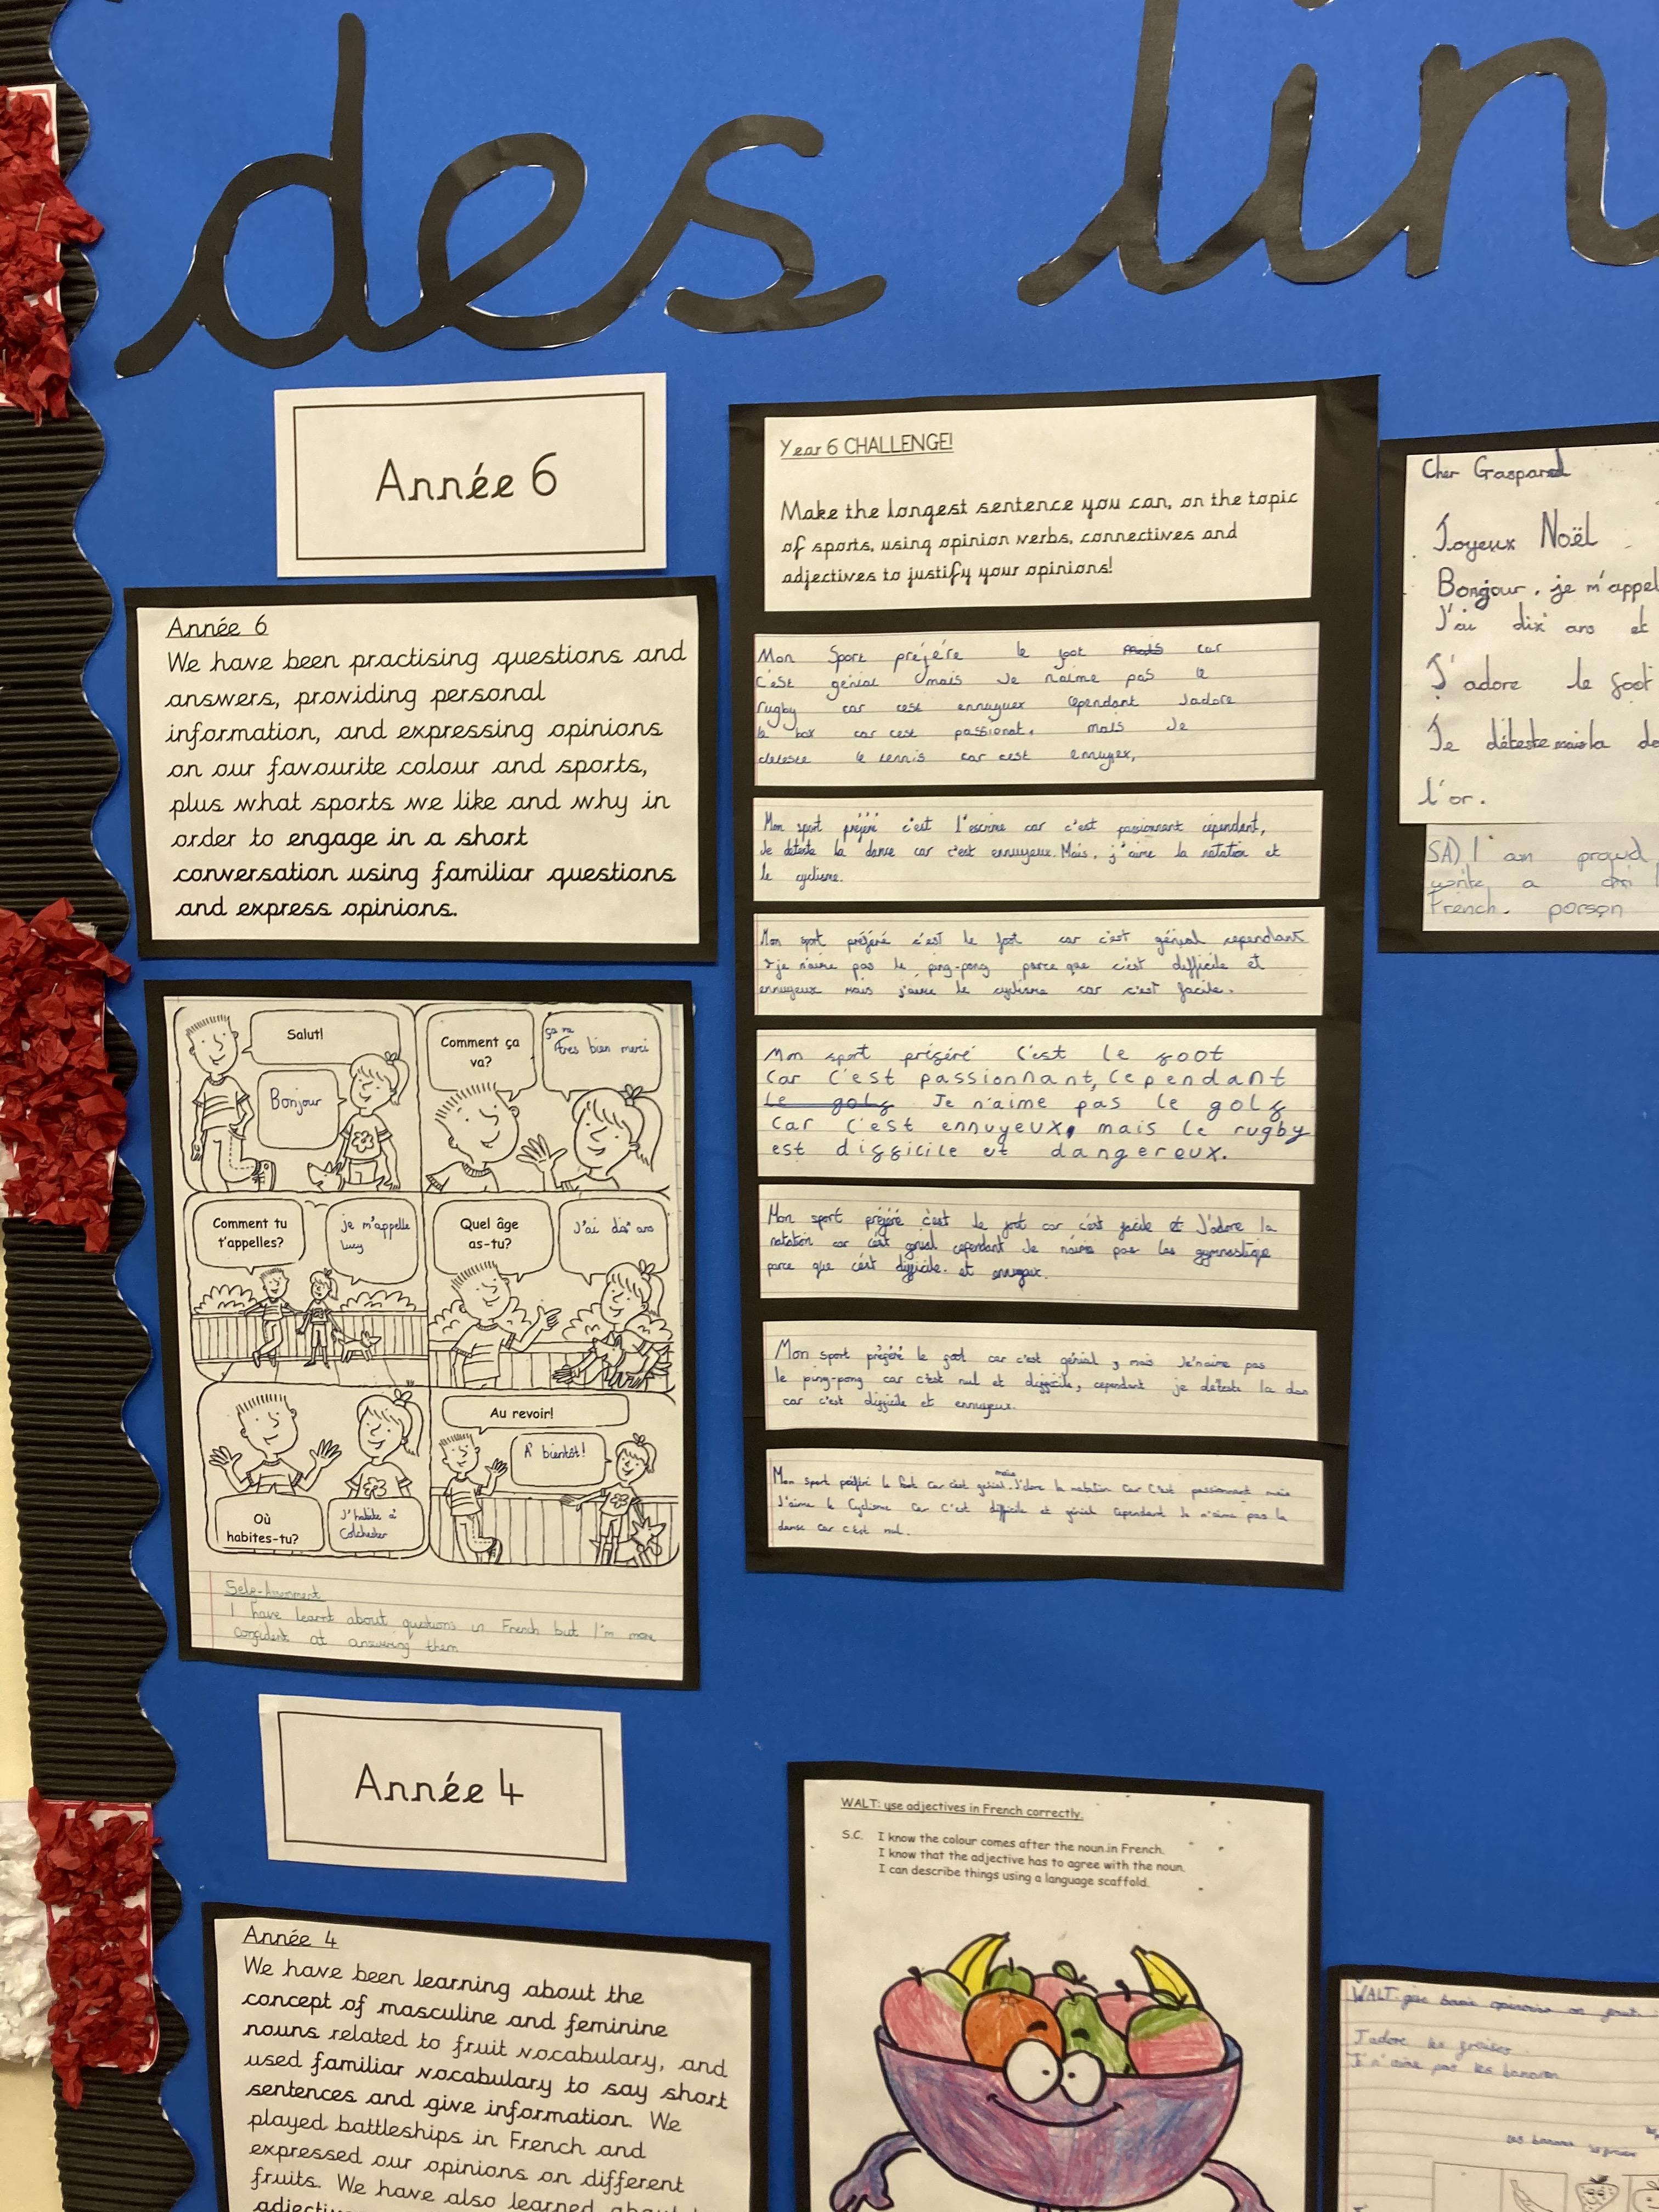 des lin
Année 6
Année 6
We have been practising questions and
answers, providing personal
information, and expressing opinions
on our favourite colour and sports,
plus what sports we like and why in
order to engage in a short
conversation using familiar questions
and express opinions.
Salut!
Bonjour
Comment ça
va?
ça va
Tres bien merci
Comment tu
t'appelles?
je m'appelle
Lucy
Quel âge
as-tu?
J'ai dix ans
Où
habites-tu?
J'habite à
Colchester
Au revoir!
A bientôt!
Self-Assessment
I have learnt about questions in French but I'm more
confident at answering them
Year 6 CHALLENGE!
Make the longest sentence you can, on the topic
of sports, using opinion verbs, connectives and
adjectives to justify your opinions!
Mon Sport préféré le foot mais car
C'est génial mais Je naime pas le
rugby car cest ennuyuex cependant Jadore
le box car cest passionat. mais Je
deteste le tennis car cest ennuyex,
Mon sport préféré c'est l'escrime car c'est passionnant cependant,
Je déteste la danse car c'est ennuyeux. Mais, j'aime la natation et
le cyclisme.
Mon sport préféré c'est le foot car c'est génial cependant
je n'aime pas le ping-pong parce que c'est difficile et
ennuyeux mais j'aime le cyclisme car c'est facile.
Mon sport préféré C'est le foot
Car C'est passionnant, Cependant
Le golf Je n'aime pas le golf
Car C'est ennuyeux, mais le rugby
est difficile et dangereux.
Mon sport préféré c'est le foot car c'est facile et J'adore la
natation car c'est génial cependant Je n'aime pas les gymnastique
parce que c'est difficile. et ennuyeux.
Mon sport préféré le foot car c'est génial, mais Je n'aime pas
le ping-pong car c'est nul et difficile, cependant je déteste la dan
car c'est difficile et ennuyeux.
Mon sport préféré le foot car c'est genial. mais J'dore la natation car C'est passionnant mais
J'aime le Cyclisme Car C'est difficile et génial Cependant Je n'aime pas la
danse car c'est nul.
Cher Gaspard
Joyeux Noël
Bonjour, je m'appel
J'ai dix ans et
J'adore le foot
Je déteste mais la da
l'or.
SA) I am proud
write a
French. person
Année 4
Année 4
We have been learning about the
concept of masculine and feminine
nouns related to fruit vocabulary, and
used familiar vocabulary to say short
sentences and give information. We
played battleships in French and
expressed our opinions on different
fruits. We have also learned about
adjectiv
WALT: use adjectives in French correctly.
S.C. I know the colour comes after the noun in French.
I know that the adjective has to agree with the noun.
I can describe things using a language scaffold.
WALT: give basic opinions on fruit.
J'adore les fraises
Je n'aime pas les bananes